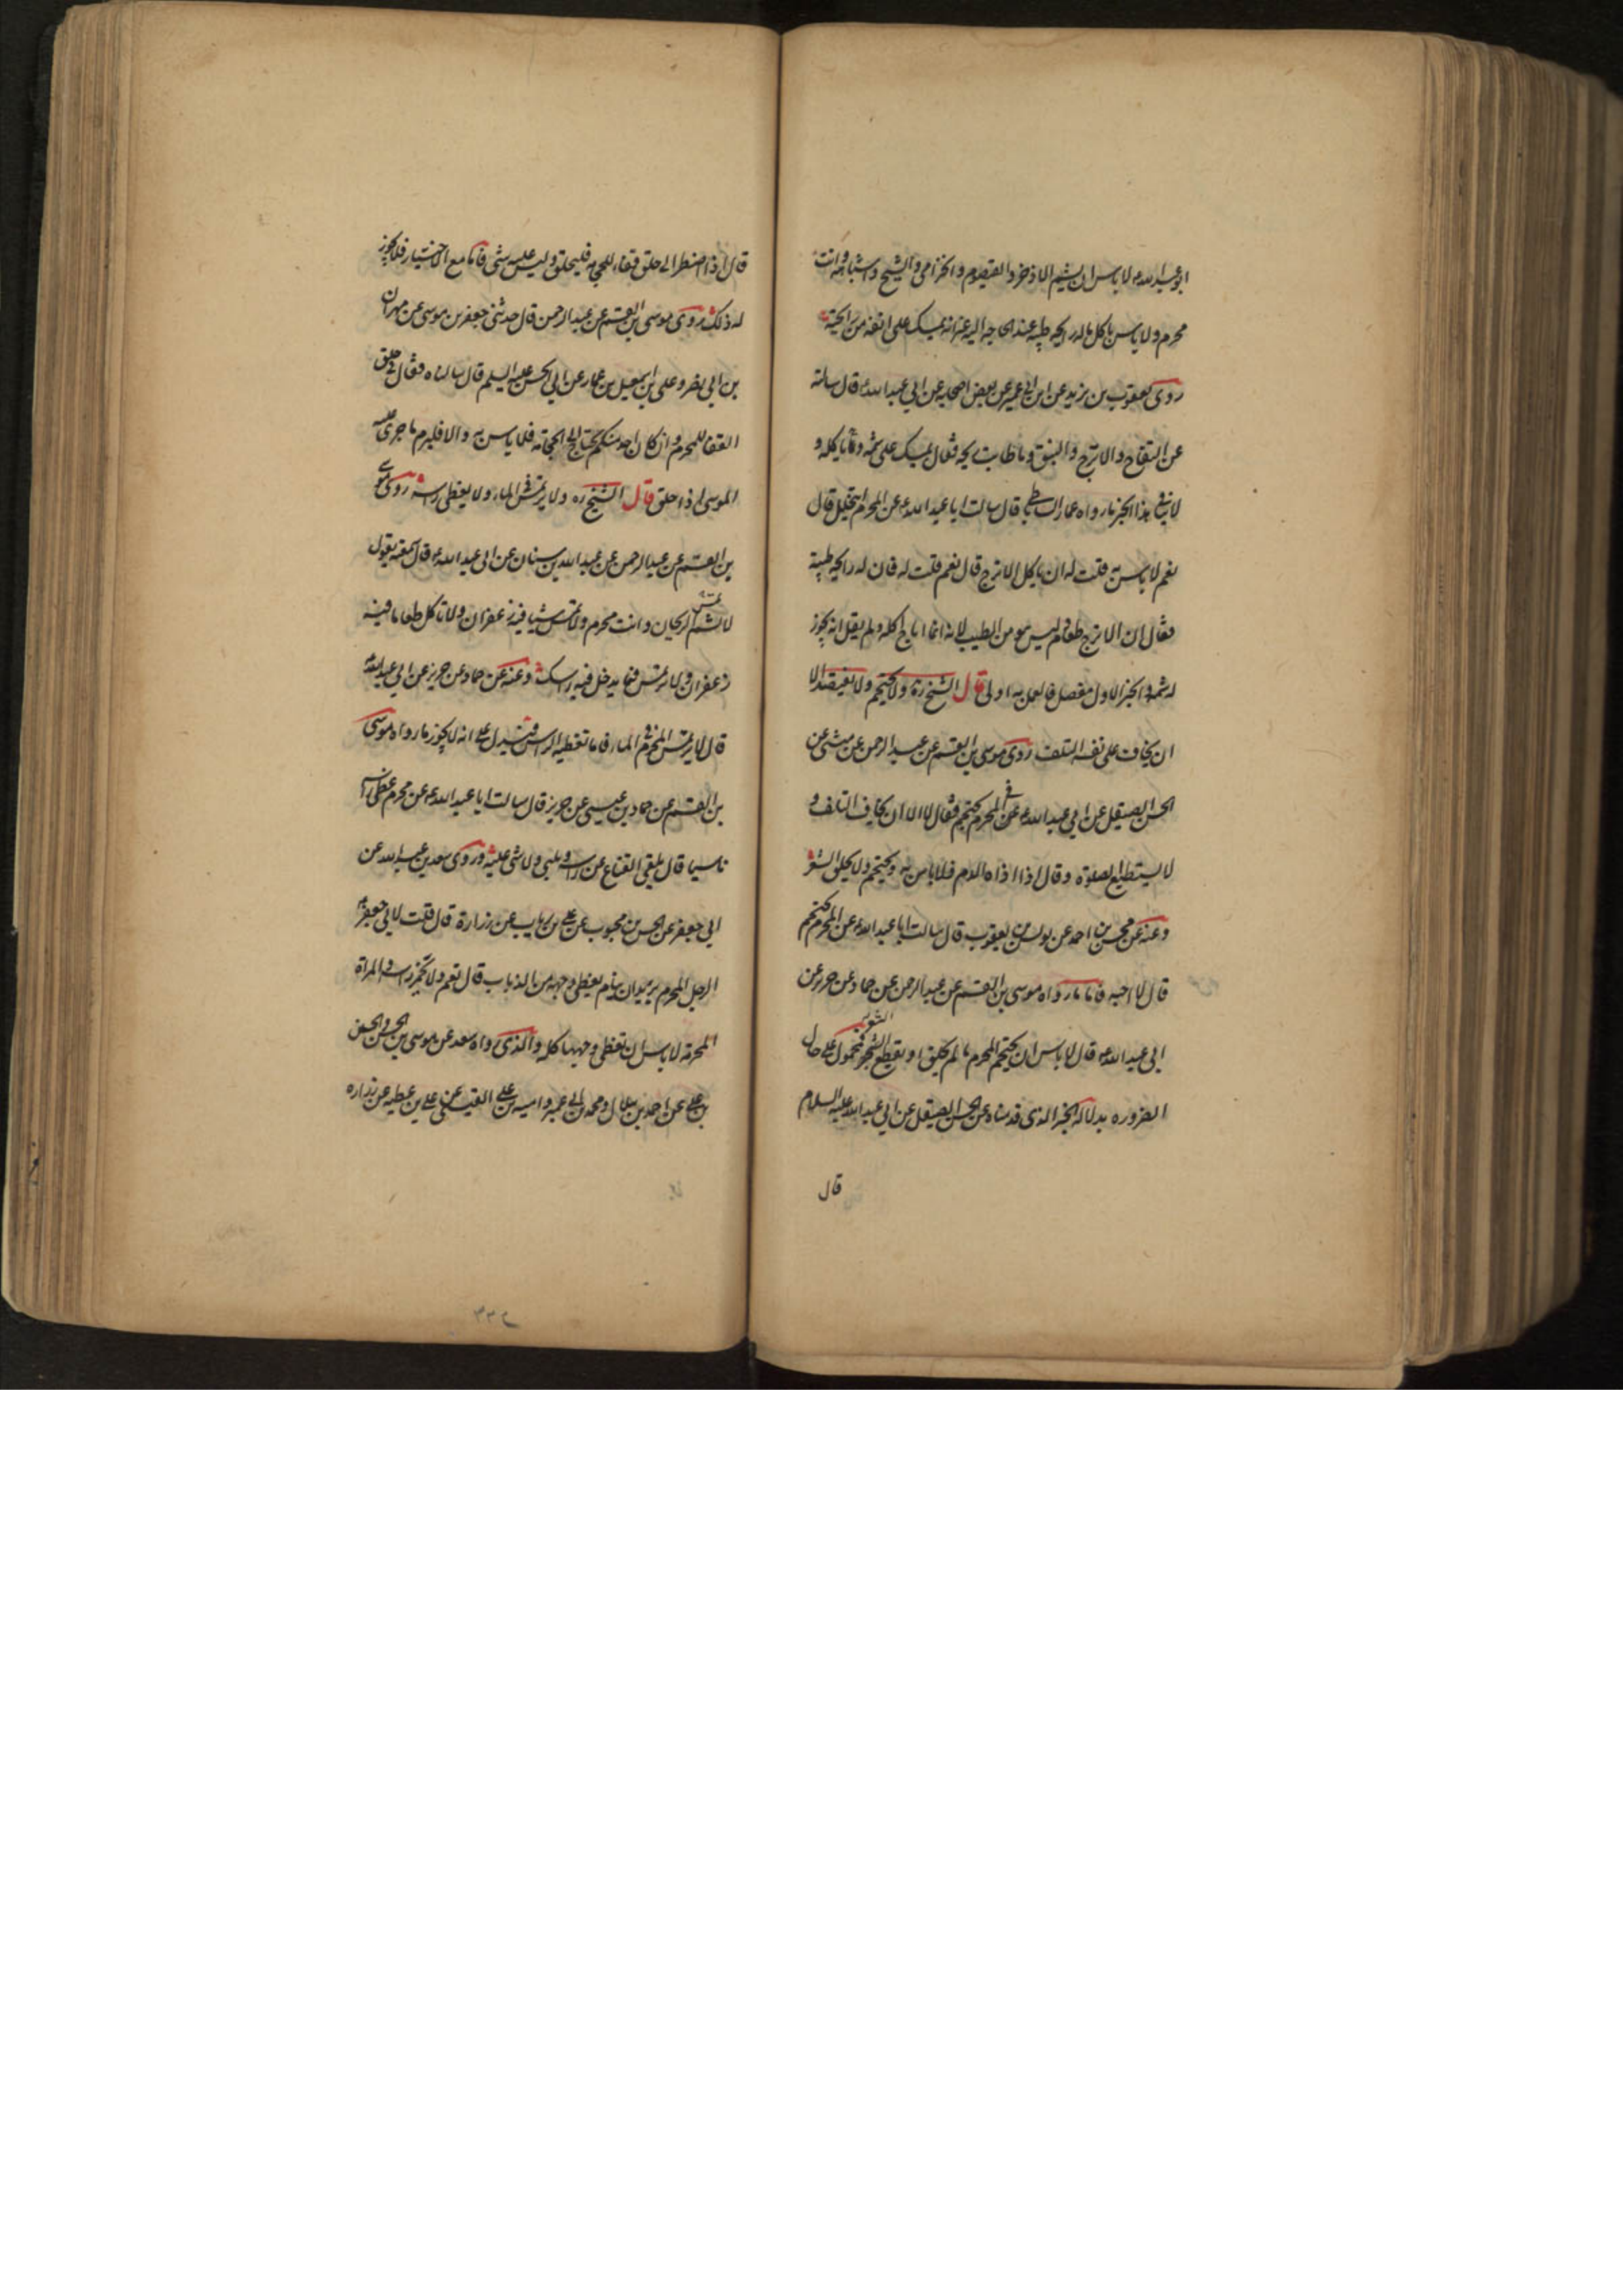 ابو عبد الله ع لا باس ان يشم الاذخر والقيصوم والخزامى والشيح واشباهه وانت
محرم ولا باس باكل ماله رايحة طيبة عند الحاجة اليه غير انه يمسك على انفه من رايحته
روى يعقوب بن يزيد عن ابن ابي عمير عن بعض اصحابه عن ابي عبد الله ع قال سالته
عن التفاح والاترج والنبق وما طابت ريحه فقال يمسك على شمه وياكله و
لا ينافي هذا الخبر ما رواه عمار الساباطي قال سالت ابا عبد الله ع عن المحرم يتخلل قال
نعم لا باس به قلت له ان ياكل الاترج قال نعم قلت له فان له رايحة طيبة
فقال ان الاترج طعام ليس هو من الطيب لانه انما اباح اكله ولم يقل انه يجوز
له شمه والخبر الاول مفصل فالعمل به اولى قال الشيخ ره ولا يحتجم ولا يفتصد الا
ان يخاف على نفسه التلف روى موسى بن القسم عن عبد الرحمن عن مثنى عن
الحسن الصيقل عن ابي عبد الله ع عن المحرم يحتجم فقال لا الا ان يخاف التلف و
لا يستطيع الصلوة وقال اذا اذاه الدم فلا باس به ويحتجم ولا يحلق الشعر
وعنه عن محسن بن احمد عن يونس بن يعقوب قال سالت ابا عبد الله ع عن المحرم يحتجم
قال لا احبه فاما ما رواه موسى بن القسم عن عبد الرحمن عن حماد عن حريز عن
ابي عبد الله ع قال لا باس ان يحتجم المحرم ما لم يحلق او يقطع الشعر فمحمول على حال
الضروره بدلالة الخبر الذى قدمناه عن الحسن الصيقل عن ابي عبد الله عليه السلام
قال
قال اذا اضطر الى حلق قفاه للحجامه فليحلق وليس عليه شئ فاما مع الاختيار فلا يجوز
له ذلك روى موسى بن القسم عن عبد الرحمن قال حدثنى جعفر بن موسى عن مهران
بن ابي نصر وعلى بن اسمعيل بن عمار عن ابي الحسن عليه السلم قال سالناه فقال فى حلق
القفا للمحرم وان كان احد منكم يحتاج الى الحجامة فلا باس به والا فليلزم ما جرى عليه
الموسى اذا حلق قال الشيخ ره ولا يرتمس فى الماء ولا يغطى راسه روى موسى
بن القسم عن عبد الرحمن عن عبد الله بن سنان عن ابي عبد الله ع قال سمعته يقول
لا تشم الريحان وانت محرم ولا تمس شيا فيه زعفران ولا تاكل طعاما فيه
زعفران ولا ترتمس فيما يدخل فيه راسك وعنه عن حماد عن حريز عن ابي عبد الله ع
قال لا يرتمس المحرم فى الماء فاما تغطيه الراس فيدل على انه لا يجوز ما رواه موسى
بن القسم عن حماد بن عيسى عن حريز قال سالت ابا عبد الله ع عن محرم غطى راسه
ناسيا قال يلقى القناع عن راسه ويلبى ولا شئ عليه وروى سعد بن عبد الله عن
ابي جعفر عن الحسن بن محبوب عن على بن رياب عن زرارة قال قلت لابي جعفر ع
الرجل المحرم يريد ان ينام يغطى وجهه من الذباب قال نعم ولا يخمر راسه والمراة
المحرمة لا باس ان تغطى وجهها كله والذى رواه سعد عن موسى بن الحسن والحسن
بن على عن احمد بن هلال ومحمد بن ابي عمير وامية بن على القيسى عن على بن عطيه عن زراره